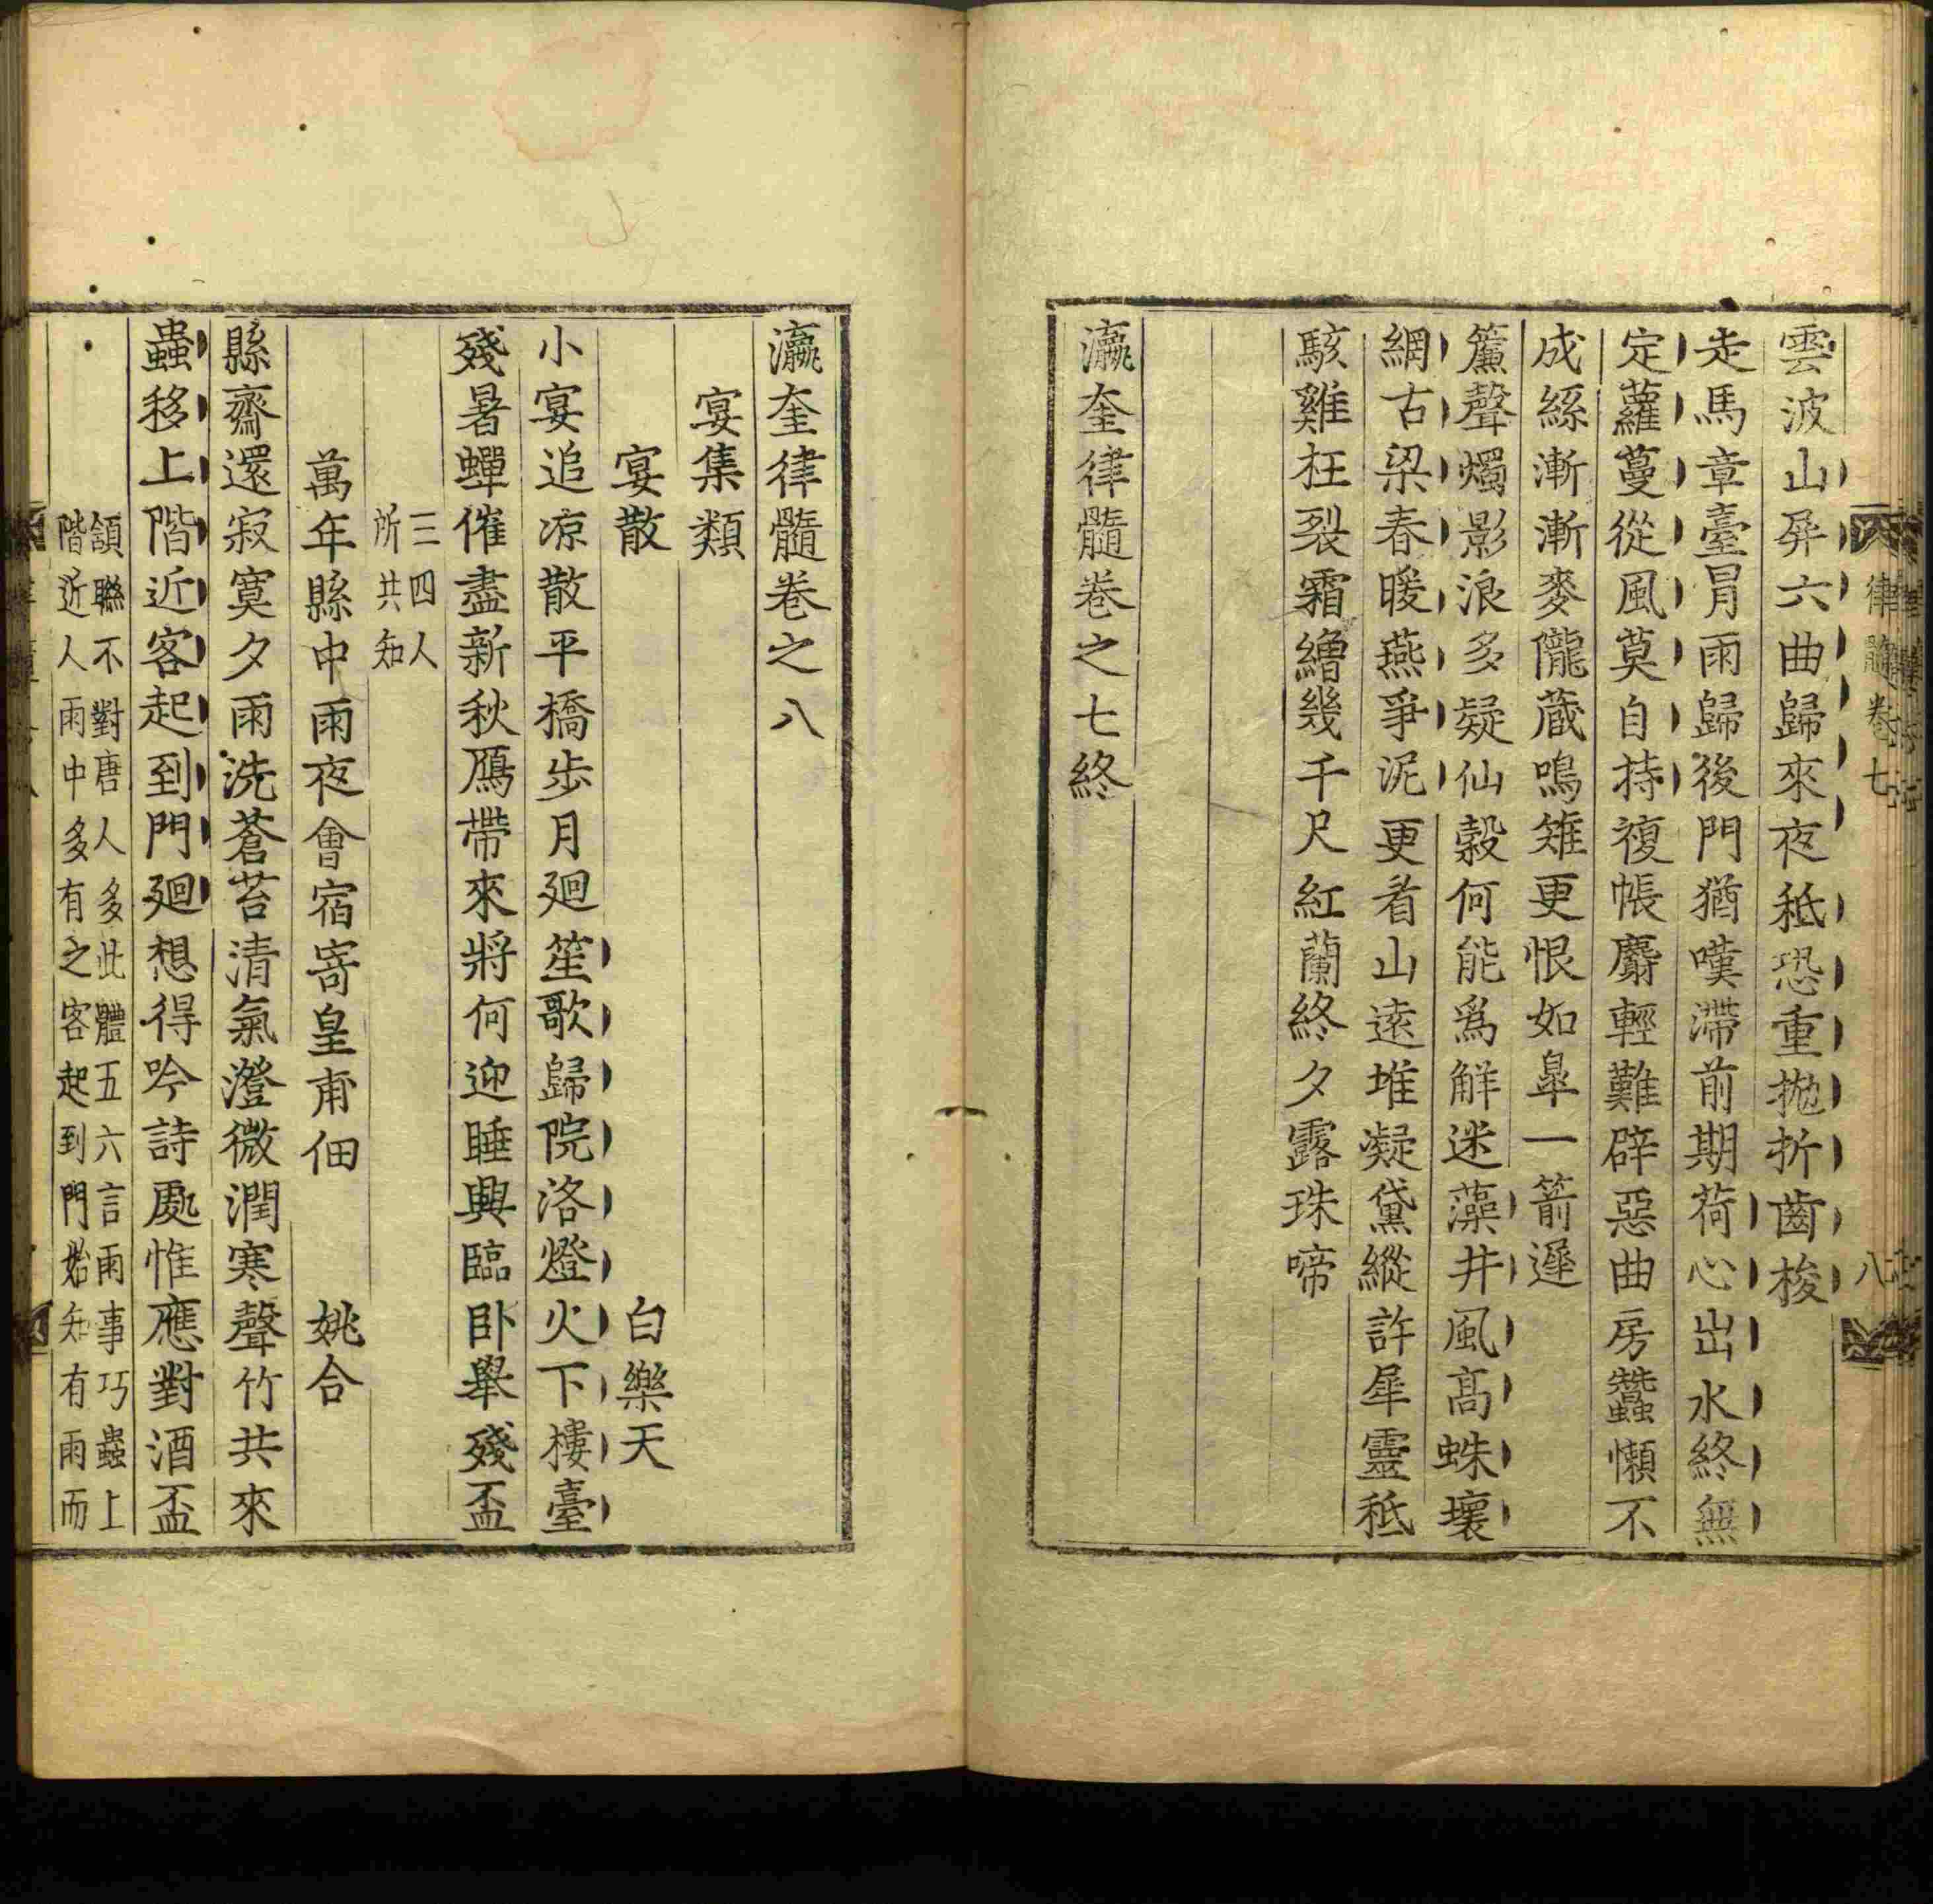 律髓卷七
八
雲波山屏六曲歸來夜秪恐重抛折齒梭
走馬章臺冒雨歸後門猶嘆滯前期荷心出水終無
定蘿蔓從風莫自持複帳麝輕難辟惡曲房蠶懶不
成絲漸漸麥隴蔵鳴雉更恨如臯一箭遲
簾聲燭影浪多疑仙縠何能爲解迷藻井風髙蛛壞
網古梁春暖燕爭泥更看山遠堆凝黛縱許犀靈秪
駭雞枉裂霜繒幾千尺紅蘭終夕露珠啼
瀛奎律髓卷之七終
瀛奎律髓卷之八
宴集類
宴散　白樂天
小宴追凉散平橋歩月廻笙歌歸院洛燈火下樓臺
殘暑蟬催盡新秋鴈帶來將何迎睡興臨卧舉殘盃
三四人
所共知
萬年縣中雨夜會宿寄皇甫佃　姚合
縣齋還寂寞夕雨洗蒼苔清氣澄微潤寒聲竹共來
蟲移上階近客起到門廻想得吟詩處惟應對酒盃
頷聯不對唐人多此體五六言雨事巧蟲上
階近人雨中多有之客起到門始知有雨而